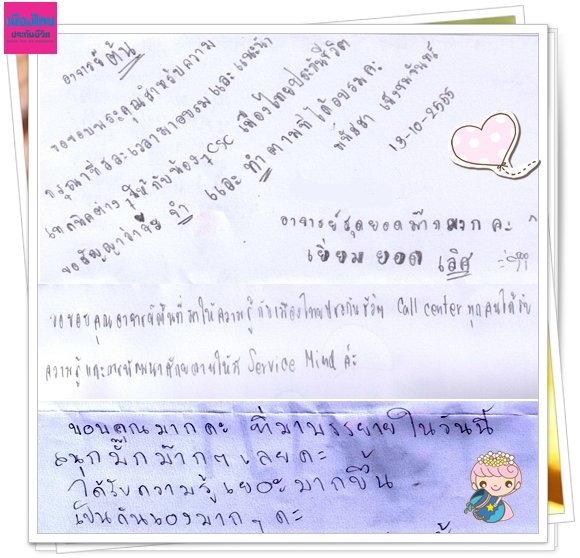 เมืองไทย
ประกันชีวิต
อาจารย์ต้น
ขอขอบพระคุณสำหรับความ
กรุณาที่สละเวลามาอบรมและแนะนำ
เทคนิคต่างๆให้กับน้องๆ CSC เมืองไทยประกันชีวิต
ขอสัญญาว่าจะ จำ และ ทำ ตามที่ได้อบรมค่ะ
13-10-2555
อาจารย์สุดยอดม๊ากมากค่ะ
เยี่ยมยอด เลิศ
ขอขอบคุณอาจารย์ต้นที่มาให้ความรู้กับเมืองไทยประกันชีวิต Call center ทุกคนได้รับ
ความรู้และการพัฒนาศักยภาพให้มี Service Mind ค่ะ
ขอบคุณมากคะ ที่มาบรรยายในวันนี้
สนุกมั๊กม๊ากๆ เลยคะ
ได้รับความรู้เยอะมากขึ้น
เป็นกันเองมากๆ คะ